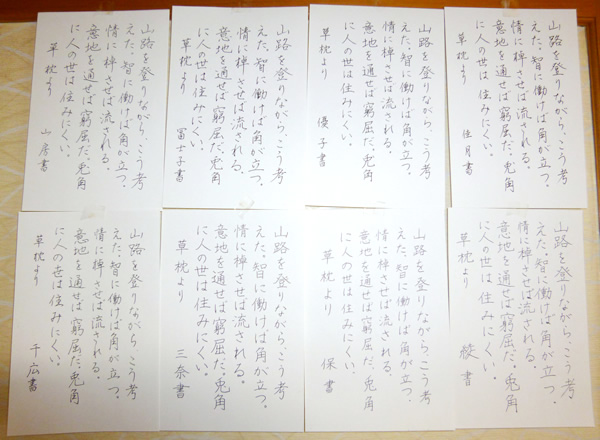 山路を登りながら、こう考
えた。智に働けば角が立つ。
情に棹させば流される。
意地を通せば窮屈だ。兎角
に人の世は住みにくい。
草枕より 佳月書
山路を登りながら、こう考
えた。智に働けば角が立つ。
情に棹させば流される。
意地を通せば窮屈だ。兎角
に人の世は住みにくい。
草枕より 優子書
山路を登りながら、こう考
えた。智に働けば角が立つ。
情に棹させば流される。
意地を通せば窮屈だ。兎角
に人の世は住みにくい。
草枕より 冨士子書
山路を登りながら、こう考
えた。智に働けば角が立つ。
情に棹させば流される。
意地を通せば窮屈だ。兎角
に人の世は住みにくい。
草枕より 山房書
山路を登りながら、こう考
えた。智に働けば角が立つ。
情に棹させば流される。
意地を通せば窮屈だ。兎角
に人の世は住みにくい。
草枕より 綾書
山路を登りながら、こう考
えた。智に働けば角が立つ。
情に棹させば流される。
意地を通せば窮屈だ。兎角
に人の世は住みにくい。
草枕より 保書
山路を登りながら、こう考
えた。智に働けば角が立つ。
情に棹させば流される。
意地を通せば窮屈だ。兎角
に人の世は住みにくい。
草枕より 三奈書
山路を登りながら、こう考
えた。智に働けば角が立つ。
情に棹させば流される。
意地を通せば窮屈だ。兎角
に人の世は住みにくい。
草枕より 千広書